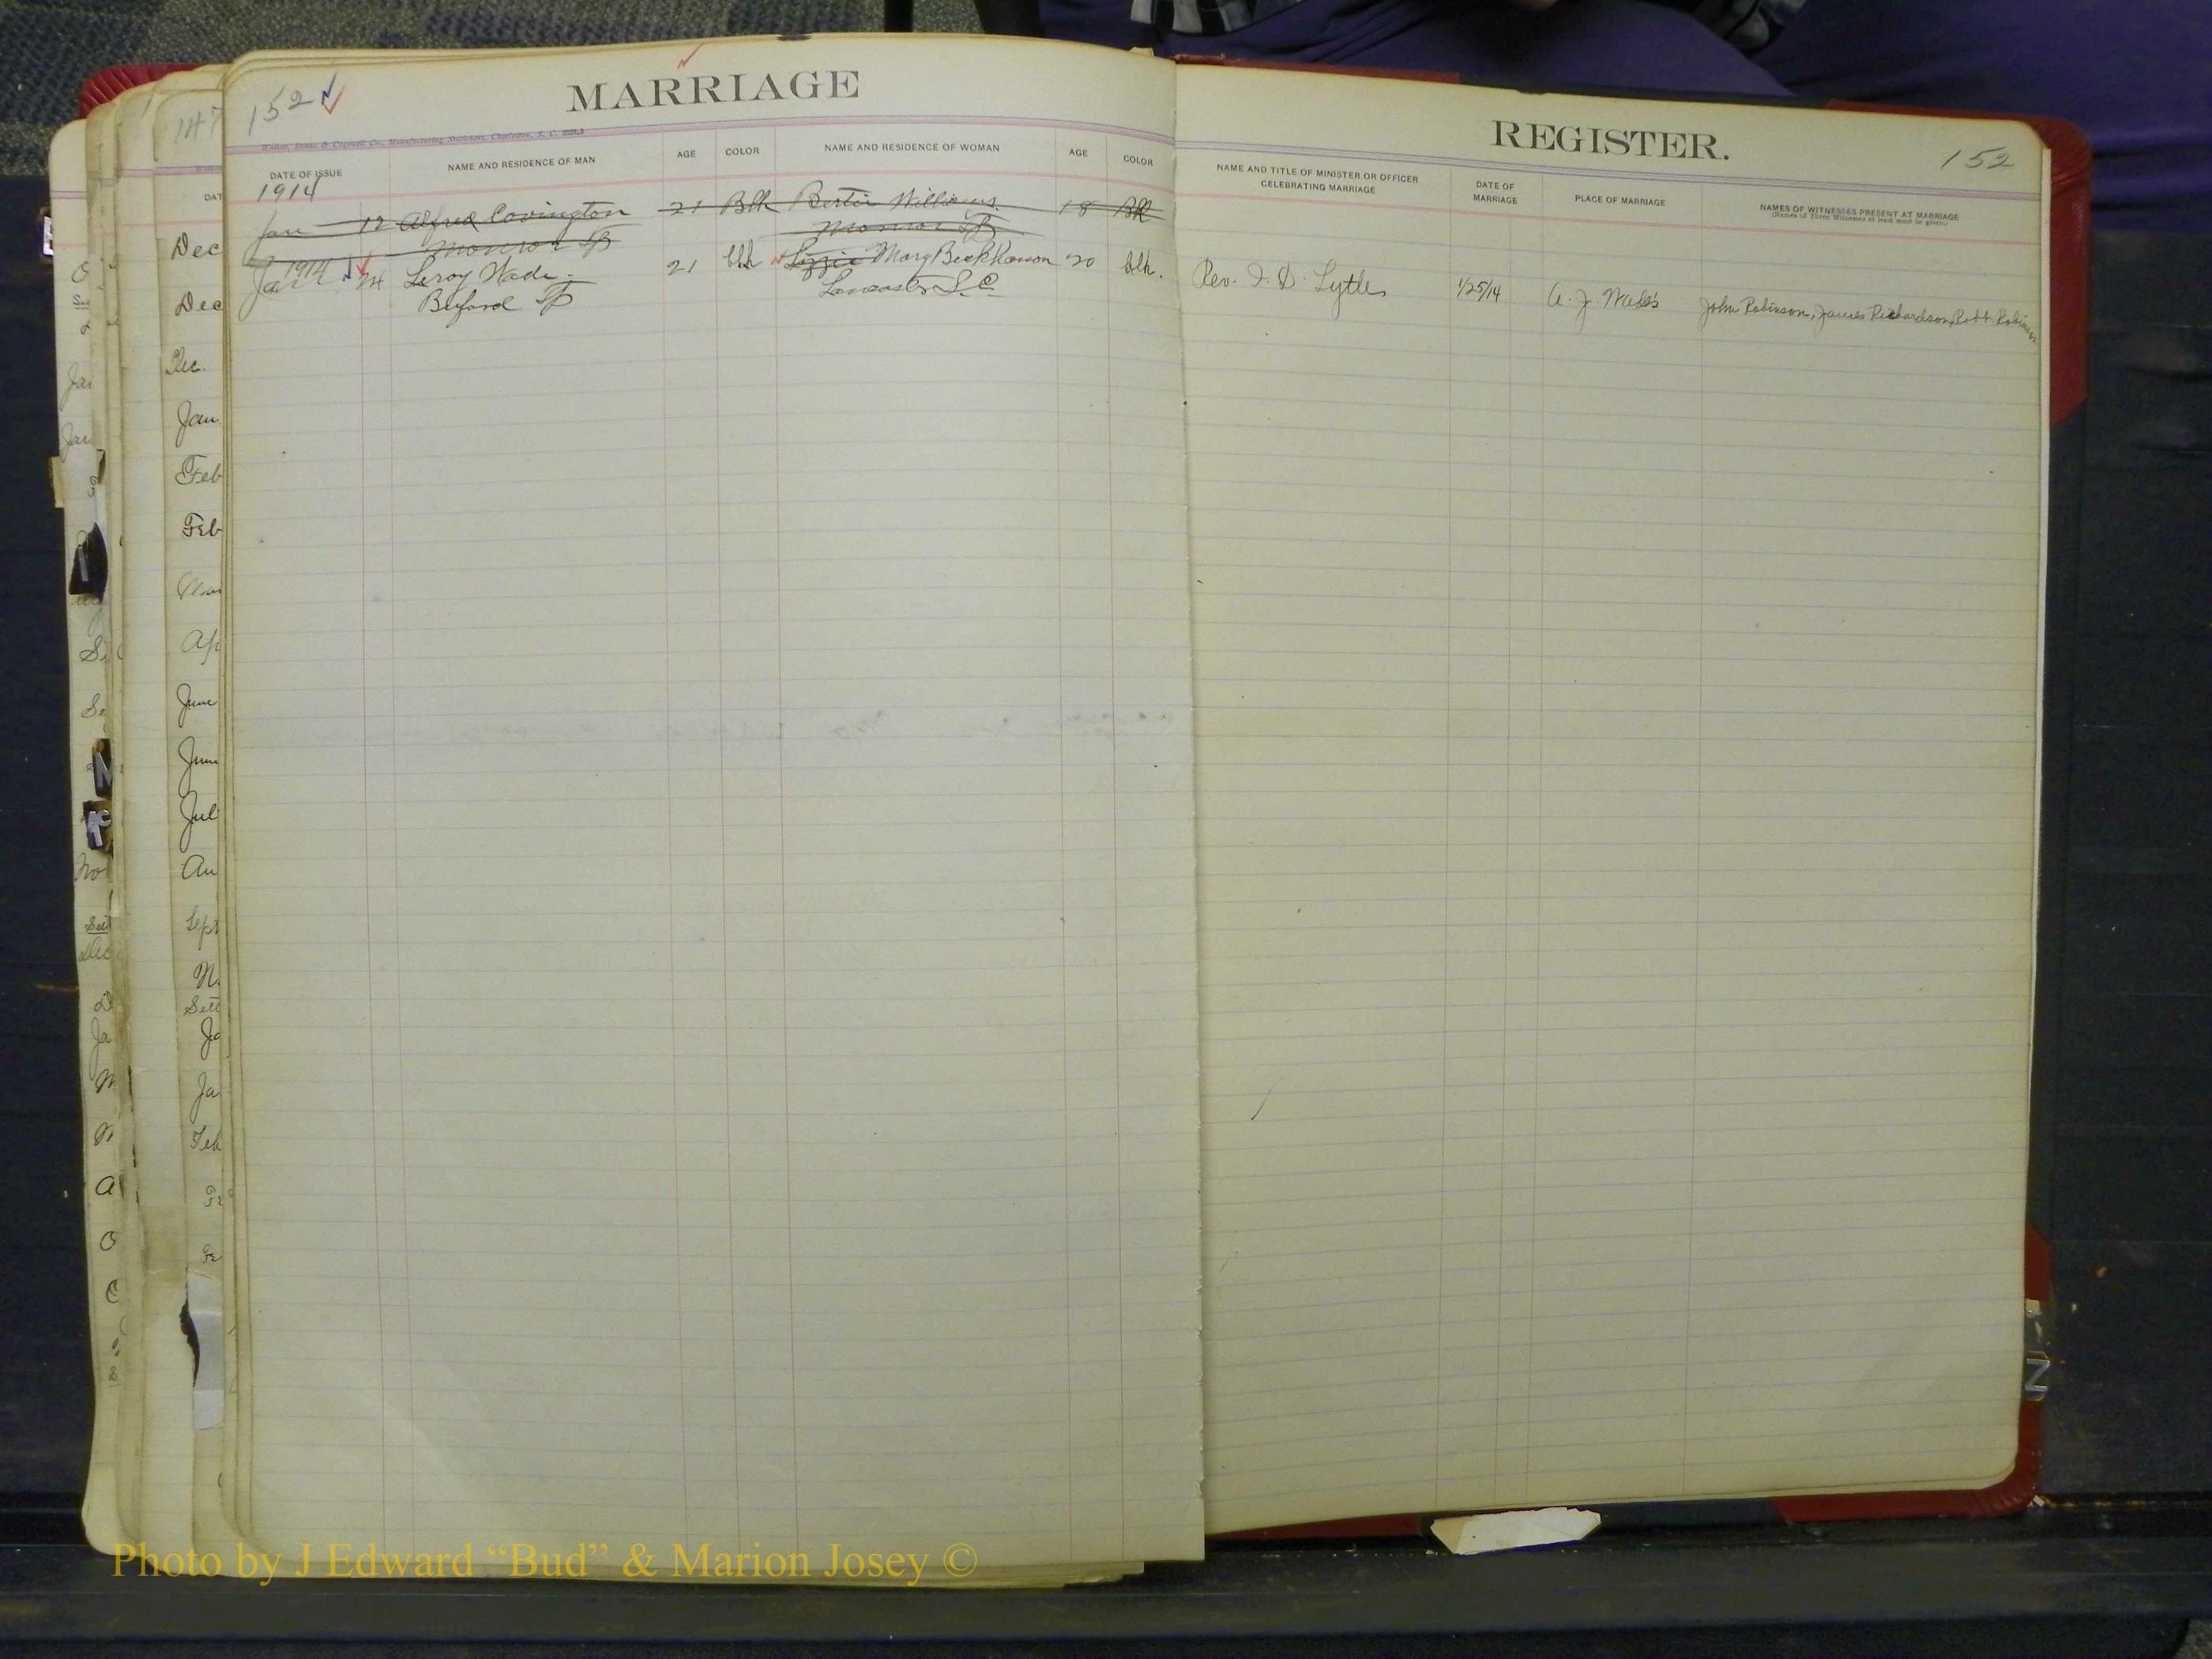 152
MARRIAGE
Walker, Evans & Cogswell Co., Manufacturing Stationers, Charleston, S. C.
DATE OF ISSUE
NAME AND RESIDENCE OF MAN
AGE
COLOR
NAME AND RESIDENCE OF WOMAN
AGE
COLOR
1914
Jan 12 Alfred Covington 21 Blk Bertie Williams 18 Blk
Monroe Tp Monroe Tp
1914
Jan 24 Leroy Wade 21 blk Lizzie Mary Beckham 20 blk.
Buford Tp Lancaster S.C.
REGISTER.
152
NAME AND TITLE OF MINISTER OR OFFICER
CELEBRATING MARRIAGE
DATE OF
MARRIAGE
PLACE OF MARRIAGE
NAMES OF WITNESSES PRESENT AT MARRIAGE
(Names of Three Witnesses at least must be given.)
Rev. I. D. Lytle 1/25/14 A. J. Wade's John Robinson, James Richardson, Robt. Robinson
147
DAT
Dec
Dec
Dec.
Jan
Feb
Feb
Mar
Ap
June
June
Jul
Au
Sept
N.
Sett
Ja
Ja
Feb
Fe
Fe
Photo by J Edward “Bud” & Marion Josey ©